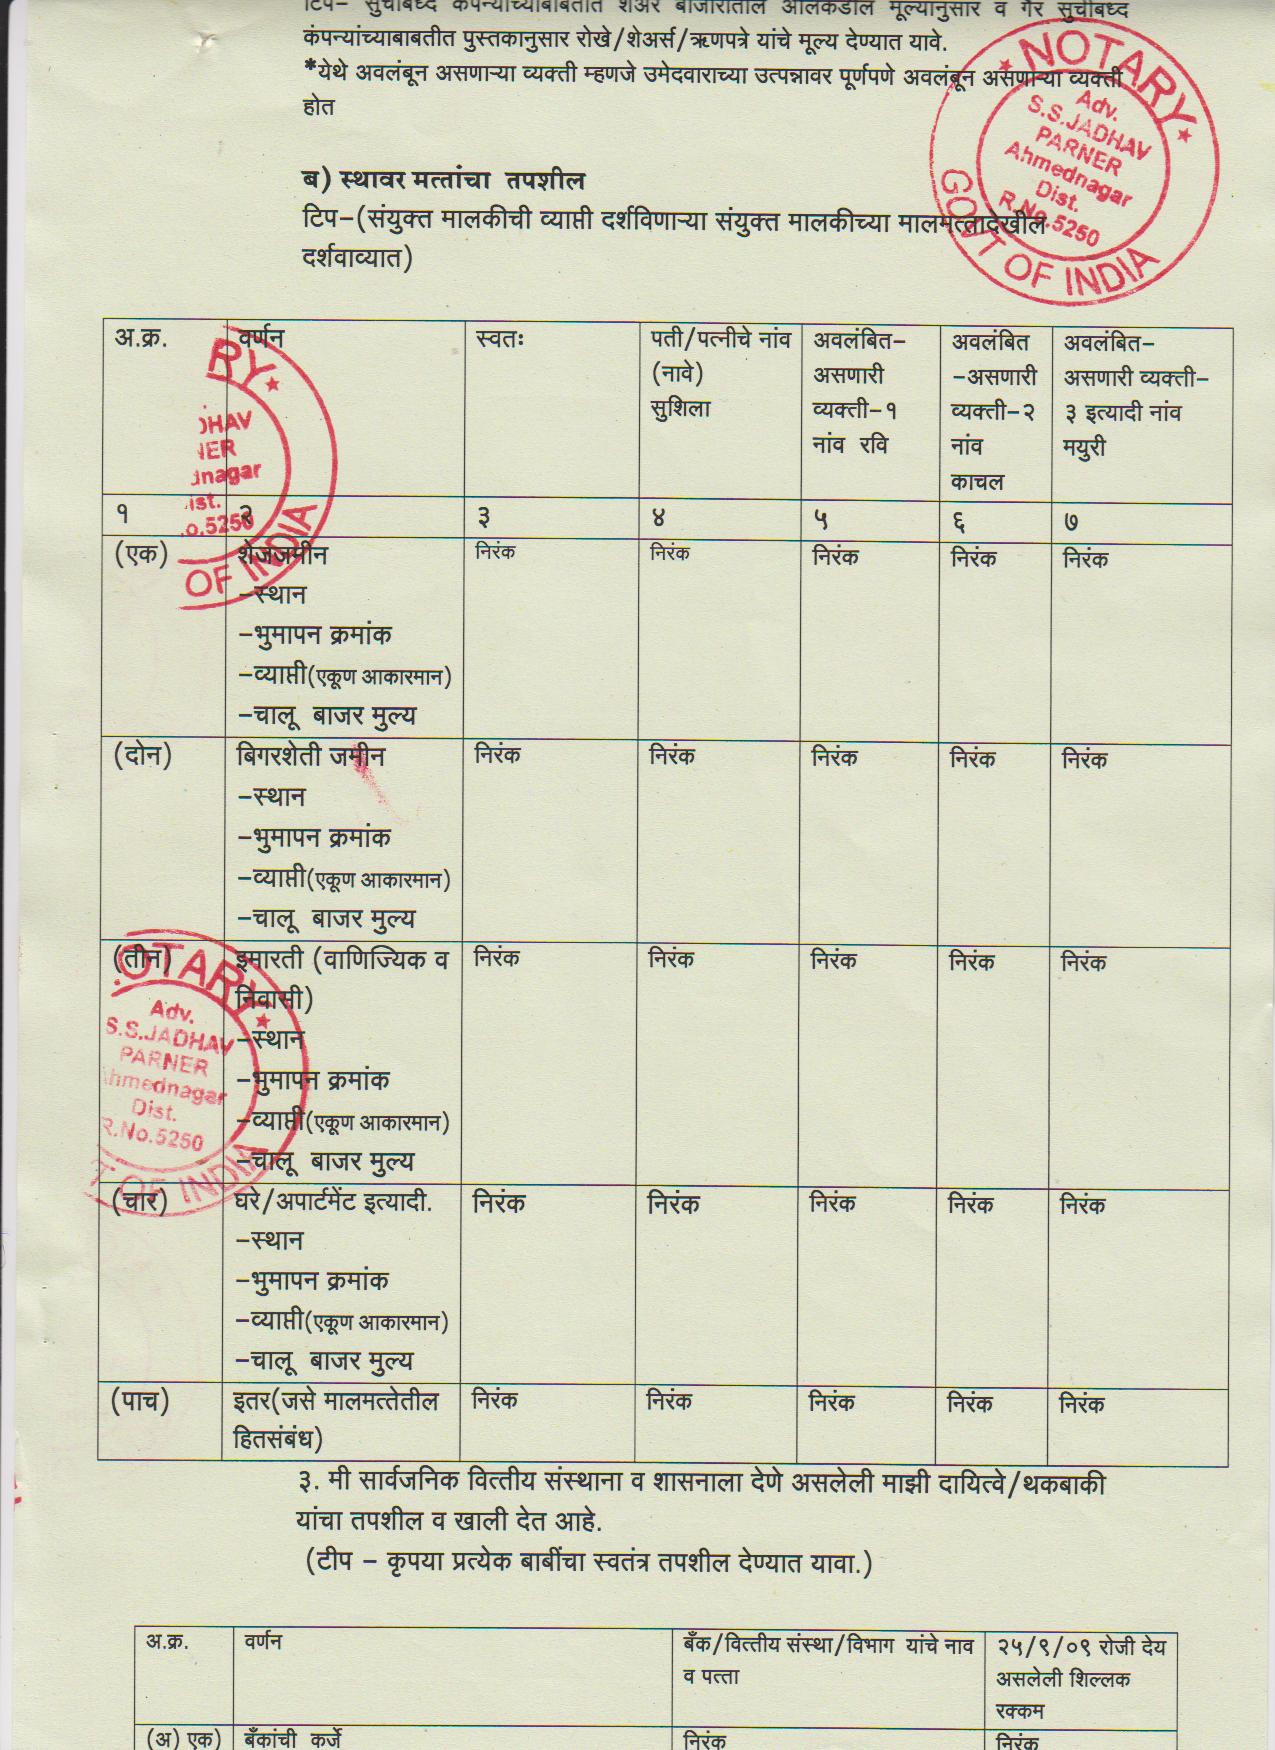 टिप– सुचीबध्द कंपन्यांच्याबाबतीत शेअर बाजारातील आलेकडील मूल्यानुसार व गैर सुचीबध्द
कंपन्यांच्याबाबतीत पुस्तकानुसार रोखे/शेअर्स/ऋणपत्रे यांचे मूल्य देण्यात यावे.
*येथे अवलंबून असणाऱ्या व्यक्ती म्हणजे उमेदवाराच्या उत्पन्नावर पूर्णपणे अवलंबून असणाऱ्या व्यक्ती
होत
NOTARY
Adv.
S.S.JADHAV
PARNER
Ahmednagar
Dist.
R.No.5250
GOVT OF INDIA
ब) स्थावर मत्तांचा तपशील
टिप–(संयुक्त मालकीची व्याप्ती दर्शविणाऱ्या संयुक्त मालकीच्या मालमत्तादेखील
दर्शवाव्यात)
अ.क्र. वर्णन स्वतः पती/पत्नीचे नांव (नावे) सुशिला अवलंबित– असणारी व्यक्ती–१ नांव रवि अवलंबित –असणारी व्यक्ती–२ नांव काचल अवलंबित– असणारी व्यक्ती– ३ इत्यादी नांव मयुरी
RY
DHAV
NER
dnagar
ist.
.o.5250
OF INDIA
१ २ ३ ४ ५ ६ ७
(एक) शेजजमीन निरंक निरंक निरंक निरंक निरंक
–स्थान
–भुमापन क्रमांक
–व्याप्ती(एकूण आकारमान)
–चालू बाजर मुल्य
(दोन) बिगरशेती जमीन निरंक निरंक निरंक निरंक निरंक
–स्थान
–भुमापन क्रमांक
–व्याप्ती(एकूण आकारमान)
–चालू बाजर मुल्य
(तीन) इमारती (वाणिज्यिक व निरंक निरंक निरंक निरंक निरंक
निवासी)
–स्थान
–भुमापन क्रमांक
–व्याप्ती(एकूण आकारमान)
–चालू बाजर मुल्य
OTARY
Adv.
S.S.JADHAV
PARNER
Ahmednagar
Dist.
R.No.5250
T OF INDIA
(चार) घरे/अपार्टमेंट इत्यादी. निरंक निरंक निरंक निरंक निरंक
–स्थान
–भुमापन क्रमांक
–व्याप्ती(एकूण आकारमान)
–चालू बाजर मुल्य
(पाच) इतर(जसे मालमत्तेतील निरंक निरंक निरंक निरंक निरंक
हितसंबंध)
३. मी सार्वजनिक वित्तीय संस्थाना व शासनाला देणे असलेली माझी दायित्वे/थकबाकी
यांचा तपशील व खाली देत आहे.
(टीप – कृपया प्रत्येक बाबींचा स्वतंत्र तपशील देण्यात यावा.)
अ.क्र. वर्णन बँक/वित्तीय संस्था/विभाग यांचे नाव व पत्ता २५/९/०९ रोजी देय असलेली शिल्लक रक्कम
(अ) एक) बँकांची कर्जे निरंक निरंक